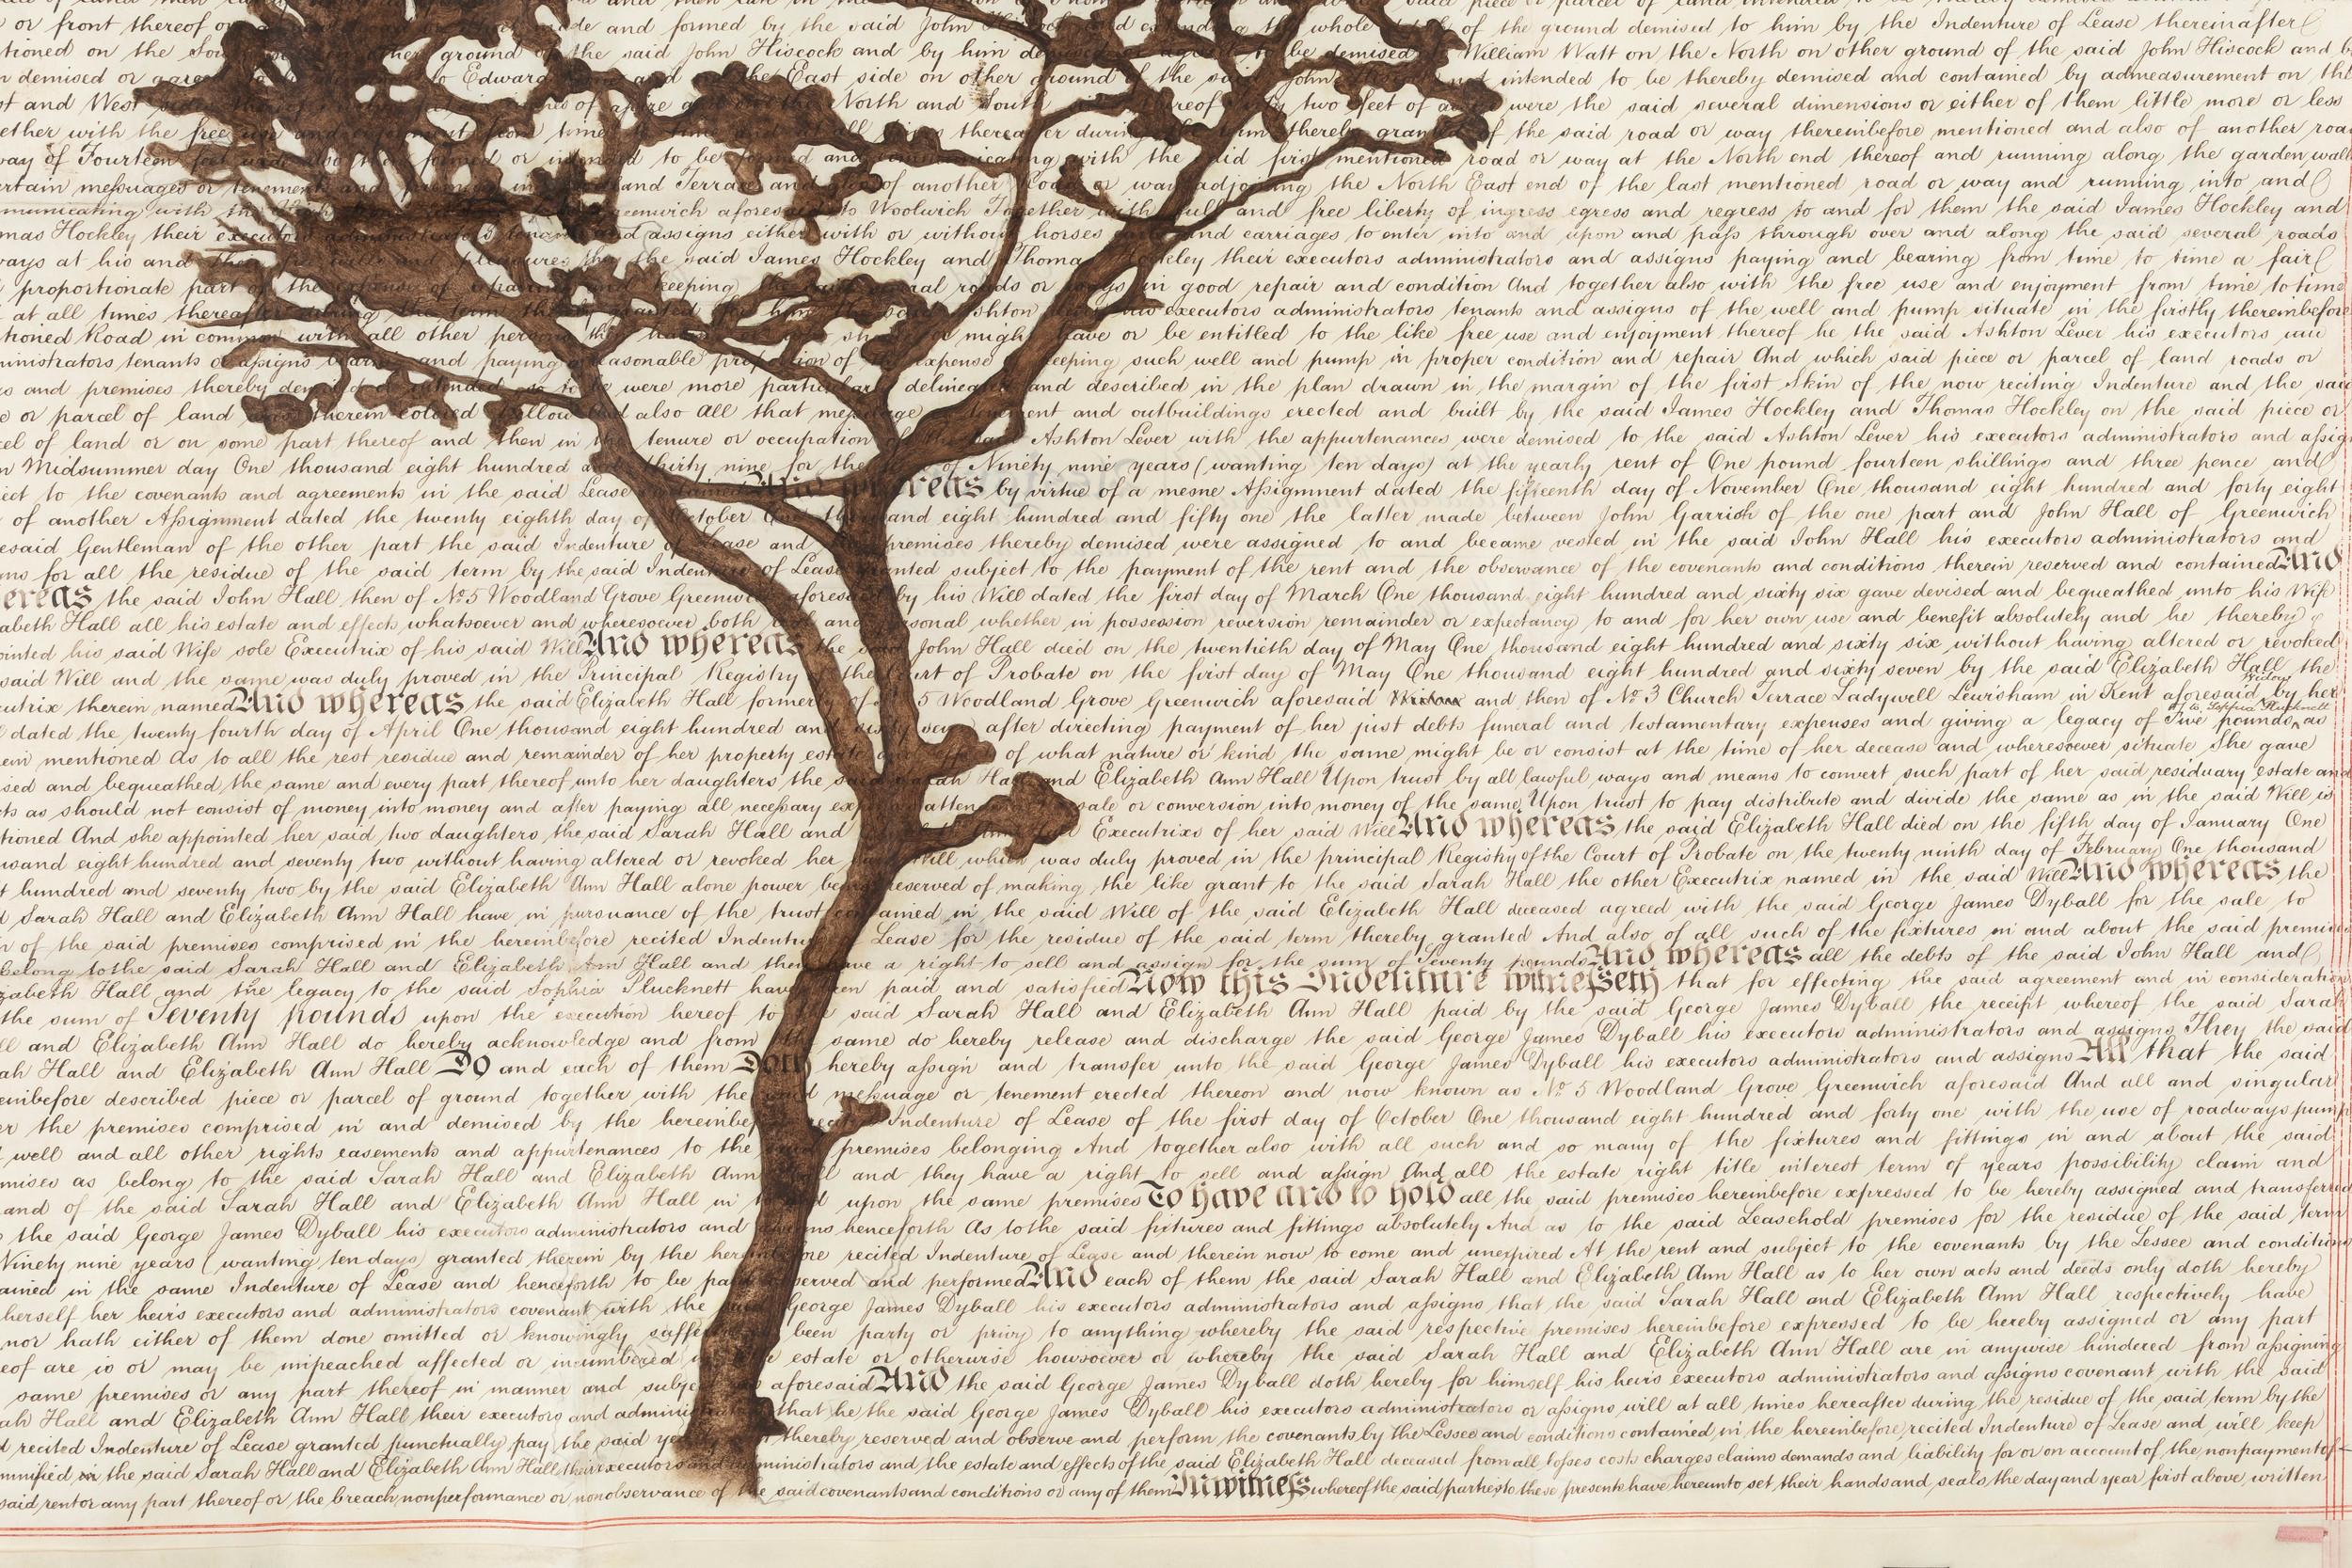 or front thereof and formed by the said John Hiscock and extending the whole of the ground demised to him by the Indenture of Lease thereinafter
tioned on the ground of the said John Hiscock and by him to be demised William Watt on the North on other ground of the said John Hiscock and
demised or to Edward and on the East side on other ground of the said John not intended to be thereby demised and contained by admeasurement on the
st and West of and on the North and South thereof two feet of were the said several dimensions or either of them little more or less
ether with the free use and from time to time all times thereafter during the term thereby granted of the said road or way thereinbefore mentioned and also of another road
way of Fourteen feet formed or intended to be formed and communicating with the said first mentioned road or way at the North end thereof and running along the garden wall
ertain meſsuages or tenements and in land Terrace and also of another Road or way adjoining the North East end of the last mentioned road or way and running into and
municating with the Greenwich aforesaid to Woolwich Together with full and free liberty of ingress egress and regress to and for them the said James Hockley and
mas Hockley their executors administrators and assigns either with or without horses and carriages to enter into and upon and paſs through over and along the said several roads
ways at his and their pleasures they the said James Hockley and Thomas Hockley their executors administrators and assigns paying and bearing from time to time a fair
proportionate part of the expense of repairing and keeping the said several roads or ways in good repair and condition And together also with the free use and enjoyment from time to time
at all times thereafter during the term thereby granted for him the said Ashton his executors administrators tenants and assigns of the well and pump situate in the firstly thereinbefore
tioned Road in common with all other persons might have or be entitled to the like free use and enjoyment thereof he the said Ashton Lever his executors
ministrators tenants or assigns and paying a reasonable proportion of the expense keeping such well and pump in proper condition and repair And which said piece or parcel of land roads or
s and premises thereby demised or intended so to be were more particularly delineated and described in the plan drawn in the margin of the first Skin of the now reciting Indenture and the said
e or parcel of land therein colored Yellow And also All that meſsuage or tenement and outbuildings erected and built by the said James Hockley and Thomas Hockley on the said piece or
cel of land or on some part thereof and then in the tenure or occupation of the said Ashton Lever with the appurtenances were demised to the said Ashton Lever his executors administrators and aſsig
m Midsummer day One thousand eight hundred and thirty nine for the of Ninety nine years (wanting ten days) at the yearly rent of One pound fourteen shillings and three pence and
ject to the covenants and agreements in the said Lease contained And whereas by virtue of a mesne Aſsignment dated the fifteenth day of November One thousand eight hundred and forty eight
of another Aſsignment dated the twenty eighth day of October One thousand eight hundred and fifty one the latter made between John Garrish of the one part and John Hall of Greenwich
esaid Gentleman of the other part the said Indenture of Lease and premises thereby demised were assigned to and became vested in the said John Hall his executors administrators and
ns for all the residue of the said term by the said Indenture of Lease granted subject to the payment of the rent and the observance of the covenants and conditions therein reserved and contained And
ereas the said John Hall then of No. 5 Woodland Grove Greenwich aforesaid by his Will dated the first day of March One thousand eight hundred and sixty six gave devised and bequeathed unto his Wife
abeth Hall all his estate and effects whatsoever and wheresoever both real and personal whether in possession reversion remainder or expectancy to and for her own use and benefit absolutely and he thereby
ointed his said Wife sole Executrix of his said Will And whereas the said John Hall died on the twentieth day of May One thousand eight hundred and sixty six without having altered or revoked
said Will and the same was duly proved in the Principal Registry of the Court of Probate on the first day of May One thousand eight hundred and sixty seven by the said Elizabeth Hall the
cutrix therein named And whereas the said Elizabeth Hall formerly of No. 5 Woodland Grove Greenwich aforesaid Widow and then of No. 3 Church Terrace Ladywell Lewisham in Kent aforesaid Widow by her
dated the twenty fourth day of April One thousand eight hundred and sixty seven after directing payment of her just debts funeral and testamentary expenses and giving a legacy of Five pounds to Sophia Plucknett as
ein mentioned As to all the rest residue and remainder of her property estate and of what nature or kind the same might be or consist at the time of her decease and wheresoever situate She gave
ised and bequeathed the same and every part thereof unto her daughters the said Sarah Hall and Elizabeth Ann Hall Upon trust by all lawful ways and means to convert such part of her said residuary estate and
ts as should not consist of money into money and after paying all neceſsary expenses attending sale or conversion into money of the same Upon trust to pay distribute and divide the same as in the said Will is
tioned And she appointed her said two daughters the said Sarah Hall and Executrixes of her said Will And whereas the said Elizabeth Hall died on the fifth day of January One
usand eight hundred and seventy two without having altered or revoked her said Will which was duly proved in the principal Registry of the Court of Probate on the twenty ninth day of February One thousand
t hundred and seventy two by the said Elizabeth Ann Hall alone power being reserved of making the like grant to the said Sarah Hall the other Executrix named in the said Will And whereas the
d Sarah Hall and Elizabeth Ann Hall have in pursuance of the trust contained in the said Will of the said Elizabeth Hall deceased agreed with the said George James Dyball for the sale to
n of the said premises comprised in the hereinbefore recited Indenture Lease for the residue of the said term thereby granted And also of all such of the fixtures in and about the said premises
belong to the said Sarah Hall and Elizabeth Ann Hall and they have a right to sell and assign for the sum of Seventy pounds And whereas all the debts of the said John Hall and
zabeth Hall and the legacy to the said Sophia Plucknett have been paid and satisfied Now this Indenture witneſseth that for effecting the said agreement and in consideration
the sum of Seventy pounds upon the execution hereof to the said Sarah Hall and Elizabeth Ann Hall paid by the said George James Dyball the receipt whereof the said Sarah
ll and Elizabeth Ann Hall do hereby acknowledge and from the same do hereby release and discharge the said George James Dyball his executors administrators and assigns They the said
ah Hall and Elizabeth Ann Hall Do and each of them Doth hereby aſsign and transfer unto the said George James Dyball his executors administrators and assigns All that the said
einbefore described piece or parcel of ground together with the said meſsuage or tenement erected thereon and now known as No. 5 Woodland Grove Greenwich aforesaid And all and singular
er the premises comprised in and demised by the hereinbefore recited Indenture of Lease of the first day of October One thousand eight hundred and forty one with the use of roadways pump
well and all other rights easements and appurtenances to the said premises belonging And together also with all such and so many of the fixtures and fittings in and about the said
mises as belong to the said Sarah Hall and Elizabeth Ann Hall and they have a right to sell and aſsign And all the estate right title interest term of years possibility claim and
and of the said Sarah Hall and Elizabeth Ann Hall in to and upon the same premises To have and to hold all the said premises hereinbefore expressed to be hereby assigned and transferred
the said George James Dyball his executors administrators and assigns henceforth As to the said fixtures and fittings absolutely And as to the said Leasehold premises for the residue of the said term
Ninety nine years (wanting ten days) granted therein by the hereinbefore recited Indenture of Lease and therein now to come and unexpired At the rent and subject to the covenants by the Lessee and conditions
ained in the same Indenture of Lease and henceforth to be paid observed and performed And each of them the said Sarah Hall and Elizabeth Ann Hall as to her own acts and deeds only doth hereby
herself her heirs executors and administrators covenant with the said George James Dyball his executors administrators and aſsigns that the said Sarah Hall and Elizabeth Ann Hall respectively have
nor hath either of them done omitted or knowingly suffered or been party or privy to anything whereby the said respective premises hereinbefore expressed to be hereby assigned or any part
eof are is or may be impeached affected or incumbered in the estate or otherwise howsoever or whereby the said Sarah Hall and Elizabeth Ann Hall are in anywise hindered from aſsigning
same premises or any part thereof in manner and subject as aforesaid And the said George James Dyball doth hereby for himself his heirs executors administrators and aſsigns covenant with the said
ah Hall and Elizabeth Ann Hall their executors and administrators that he the said George James Dyball his executors administrators or aſsigns will at all times hereafter during the residue of the said term by the
d recited Indenture of Lease granted punctually pay the said thereby reserved and observe and perform the covenants by the Lessee and conditions contained in the hereinbefore recited Indenture of Lease and will keep
mnified the said Sarah Hall and Elizabeth Ann Hall their executors and administrators and the estate and effects of the said Elizabeth Hall deceased from all loſses costs charges claims demands and liability for or on account of the nonpayment of
said rent or any part thereof or the breach nonperformance or nonobservance of the said covenants and conditions or any of them In witneſs whereof the said parties to these presents have hereunto set their hands and seals the day and year first above written